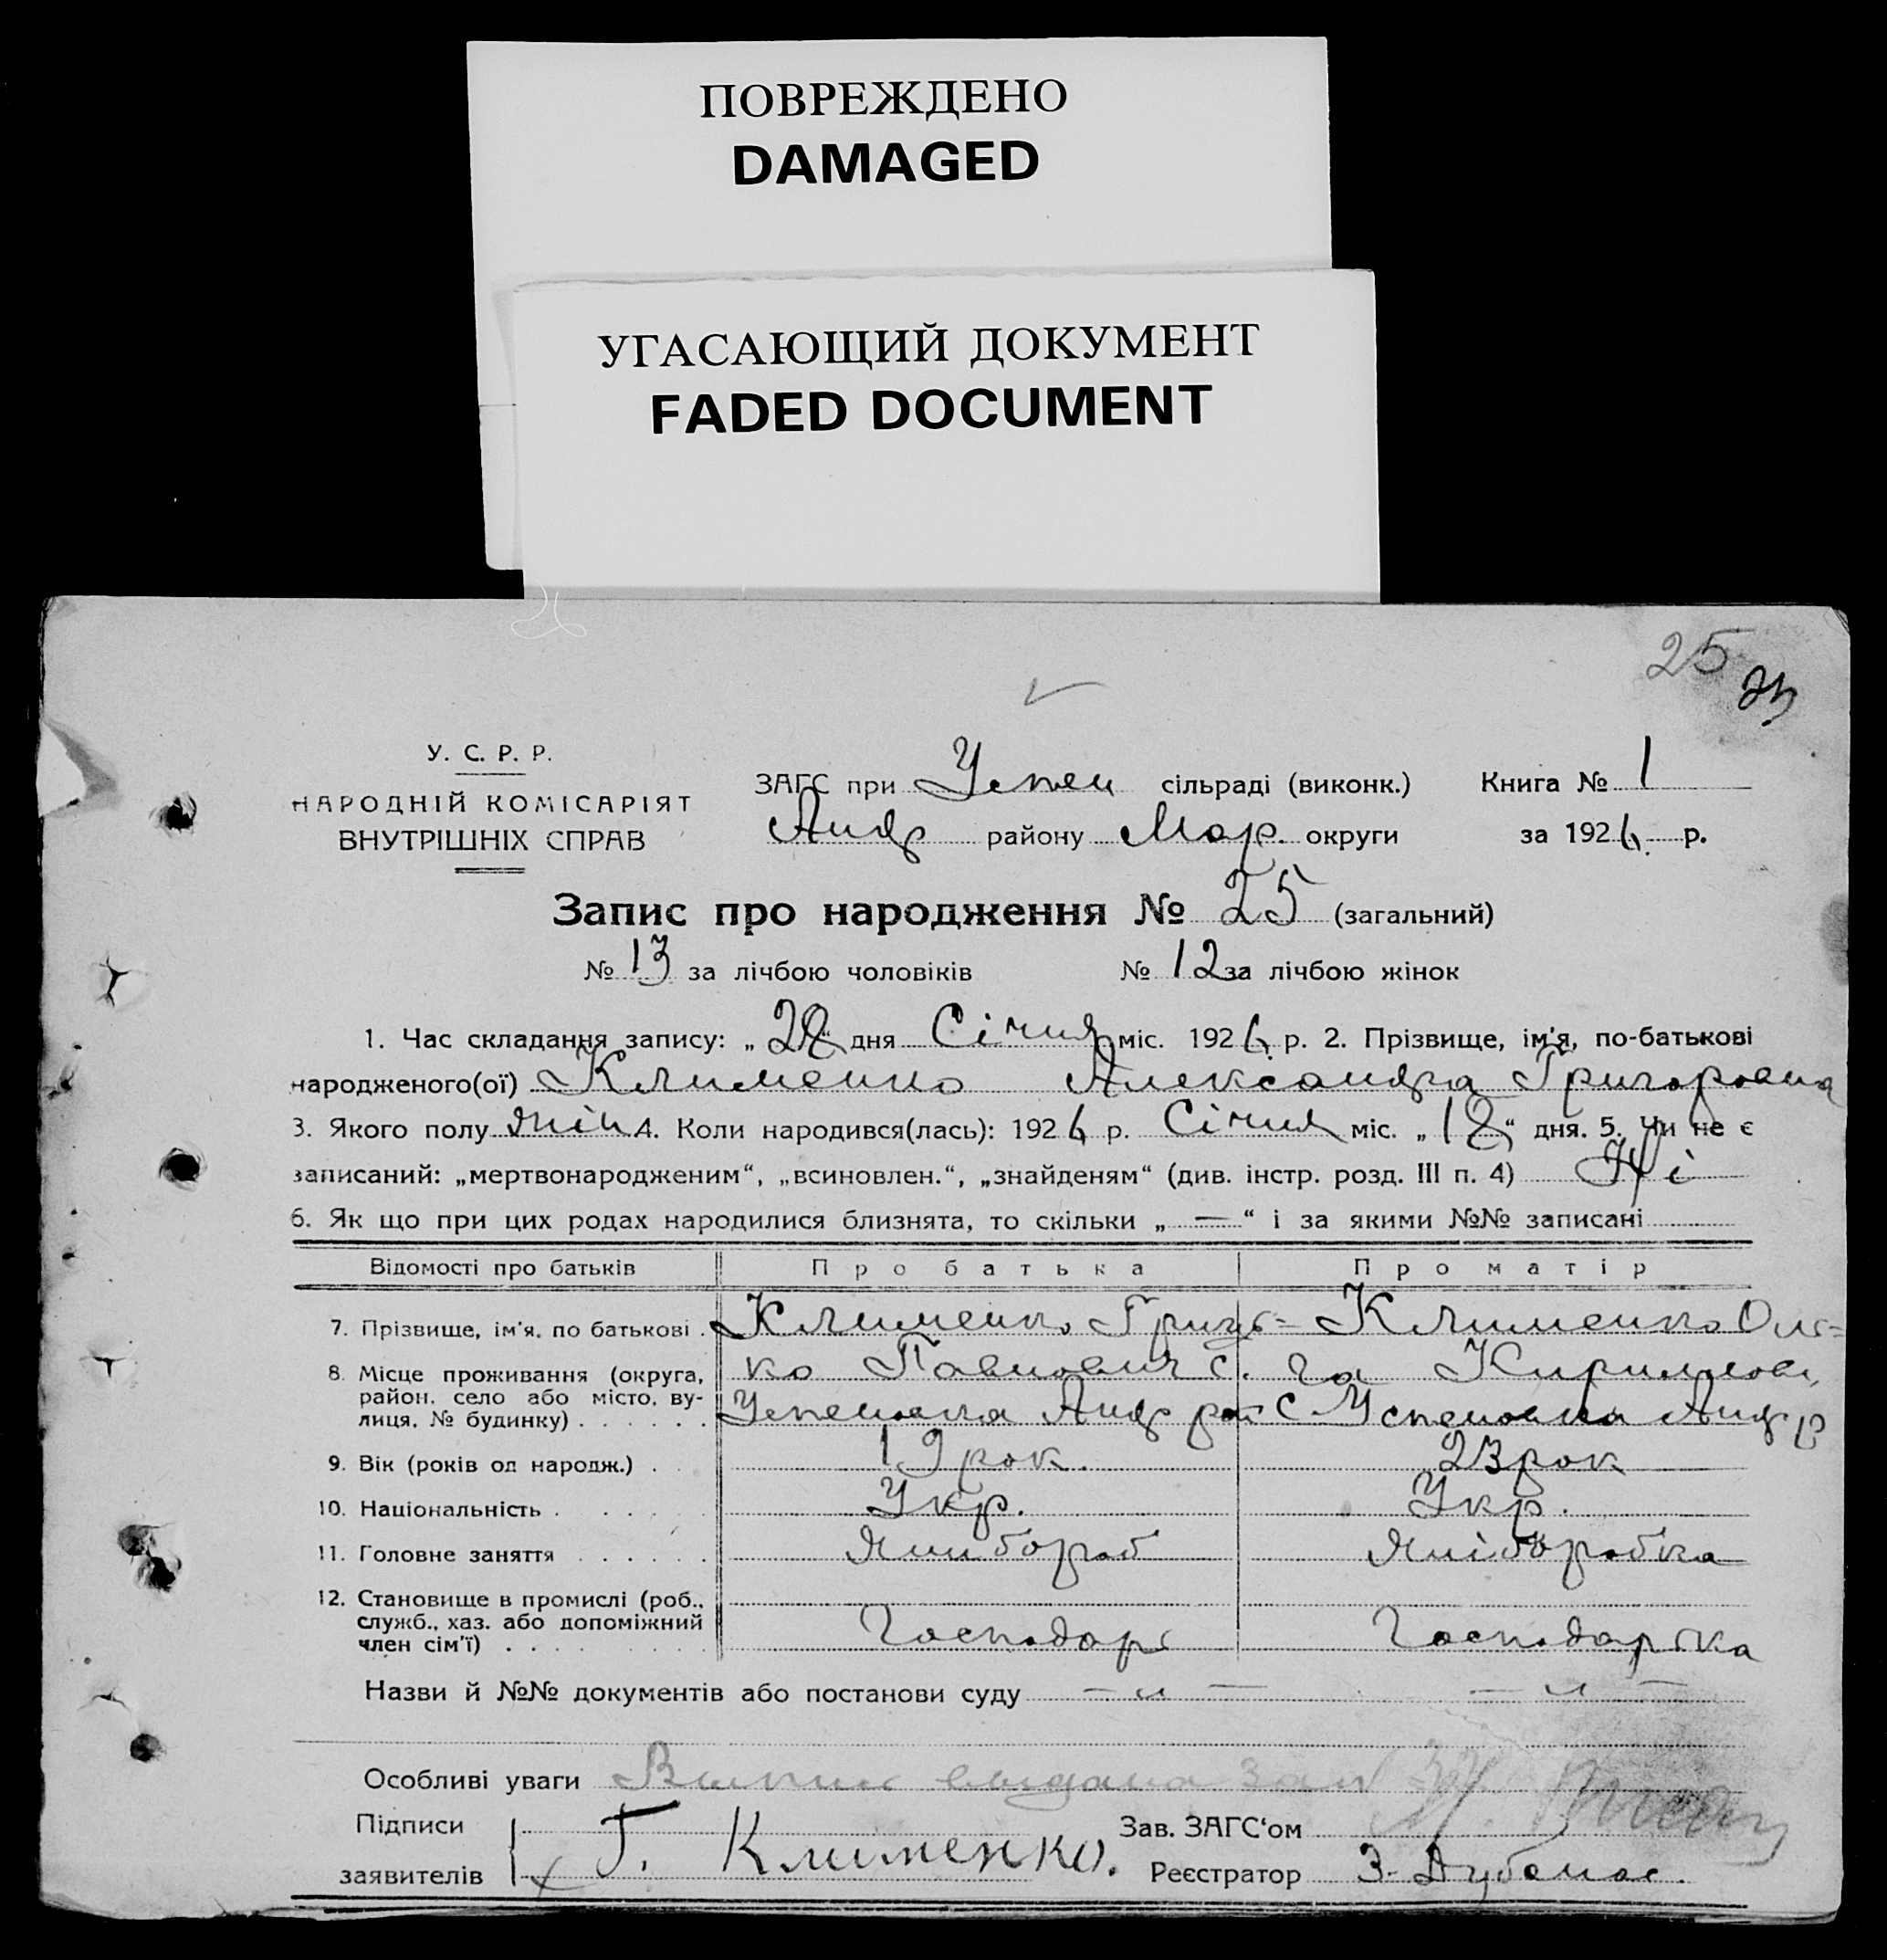 ПОВРЕЖДЕНО
DAMAGED
УГАСАЮЩИЙ ДОКУМЕНТ
FADED DOCUMENT
25
25
У. С. Р. Р.
НАРОДНІЙ КОМІСАРІЯТ
ВНУТРІШНІХ СПРАВ
ЗАГС при Успен сільраді (виконк.) Книга № 1
Андр району Мар. округи за 1926 р.
Запис про народження № 25 (загальний)
№ 13 за лічбою чоловіків № 12 за лічбою жінок
1. Час складання запису: „28“ дня Січня міс. 1926 р. 2. Прізвище, ім'я, по-батькові
народженого(ої) Клименко Александра Григоровна
3. Якого полу жін 4. Коли народився(лась): 1926 р. Січня міс. „18“ дня. 5. Чи не є
записаний: „мертвонародженим“, „всиновлен.“, „знайденям“ (див. інстр. розд. III п. 4) Ні
6. Як що при цих родах народилися близнята, то скільки „ — “ і за якими №№ записані
Відомості про батьків Про батька Про матір
7. Прізвище, ім'я, по батькові . Клименко Гриць= Клименко Оль=
8. Місце проживання (округа, ко Павлович с. га Кирилловн
район, село або місто, ву-
лиця, № будинку) . . . . . . Успеновка Андр рай с Успеновка Андр р
9. Вік (років од народж.) . 19 рок. 23 рок
10. Національність . . . . . . Укр. Укр.
11. Головне заняття . . . . . . Хлибороб Хліборобка
12. Становище в промислі (роб.,
служб., хаз. або допоміжний
член сім'ї) . . . . Господарь Господарька
Назви й №№ документів або постанови суду — „ — — „ —
Особливі уваги Выпис выдана
Підписи
заявителів Г. Клименко.
Зав. ЗАГС'ом
Реєстратор З.